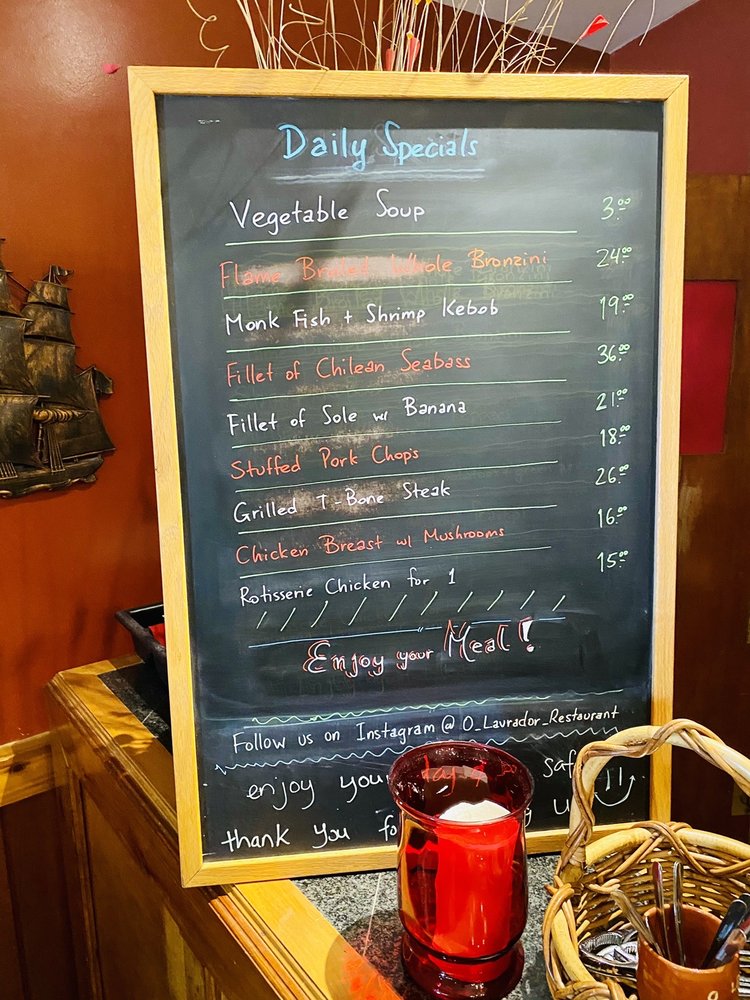 Daily Specials
Vegetable Soup 3.00
Flame Broiled Whole Bronzini 24.00
Monk Fish + Shrimp Kebob 19.00
Fillet of Chilean Seabass 36.00
Fillet of Sole w/ Banana 21.00
Stuffed Pork Chops 18.00
Grilled T-Bone Steak 26.00
Chicken Breast w/ Mushrooms 16.00
Rotisserie Chicken for 1 15.00
Enjoy your Meal!
Follow us on Instagram @ O_Lavrador_Restaurant
enjoy your day
thank you